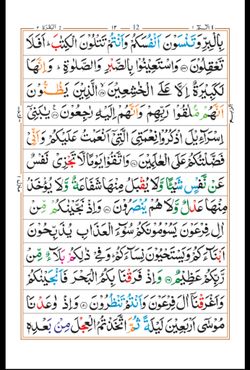 بِالْبِرِّ وَتَنْسَوْنَ اَنْفُسَكُمْ وَاَنْتُمْ تَتْلُوْنَ الْكِتٰبَ ؕ اَفَلَا
تَعْقِلُوْنَ ۞ وَاسْتَعِيْنُوْا بِالصَّبْرِ وَالصَّلٰوةِ ؕ وَاِنَّهَا
لَكَبِيْرَةٌ اِلَّا عَلَى الْخٰشِعِيْنَ ۞ الَّذِيْنَ يَظُنُّوْنَ
اَنَّهُمْ مُّلٰقُوْا رَبِّهِمْ وَاَنَّهُمْ اِلَيْهِ رٰجِعُوْنَ ۞ يٰبَنِيْٓ
اِسْرَآءِيْلَ اذْكُرُوْا نِعْمَتِيَ الَّتِيْٓ اَنْعَمْتُ عَلَيْكُمْ وَاَنِّيْ
فَضَّلْتُكُمْ عَلَى الْعٰلَمِيْنَ ۞ وَاتَّقُوْا يَوْمًا لَّا تَجْزِيْ نَفْسٌ
عَنْ نَّفْسٍ شَيْـًٔا وَّلَا يُقْبَلُ مِنْهَا شَفَاعَةٌ وَّلَا يُؤْخَذُ
مِنْهَا عَدْلٌ وَّلَا هُمْ يُنْصَرُوْنَ ۞ وَاِذْ نَجَّيْنٰكُمْ مِّنْ
اٰلِ فِرْعَوْنَ يَسُوْمُوْنَكُمْ سُوْٓءَ الْعَذَابِ يُذَبِّحُوْنَ
اَبْنَآءَكُمْ وَيَسْتَحْيُوْنَ نِسَآءَكُمْ ؕ وَفِيْ ذٰلِكُمْ بَلَآءٌ مِّنْ
رَّبِّكُمْ عَظِيْمٌ ۞ وَاِذْ فَرَقْنَا بِكُمُ الْبَحْرَ فَاَنْجَيْنٰكُمْ
وَاَغْرَقْنَآ اٰلَ فِرْعَوْنَ وَاَنْتُمْ تَنْظُرُوْنَ ۞ وَاِذْ وٰعَدْنَا
مُوْسٰٓى اَرْبَعِيْنَ لَيْلَةً ثُمَّ اتَّخَذْتُمُ الْعِجْلَ مِنْۢ بَعْدِهٖ